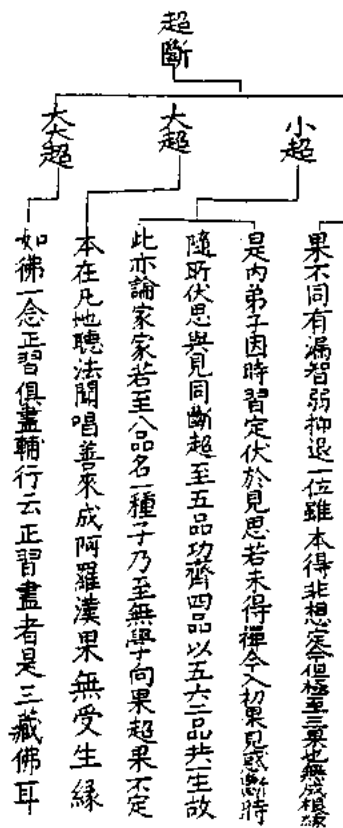 超斷
小超
大超
大大超
果不同有漏智弱抑退一位雖本得非想定今但極至三果也無成根緣
是內弟子因時習定伏於見思若未得禪今入初果見惑斷時
隨所伏思與見同斷超至五品功齊四品以五六二品共一生故
此亦論家家若至八品名一種子乃至無學向果超果不定
本在凡地聽法聞唱善來成阿羅漢果無受生緣
如佛一念正習俱盡輔行云正習盡者是三藏佛耳